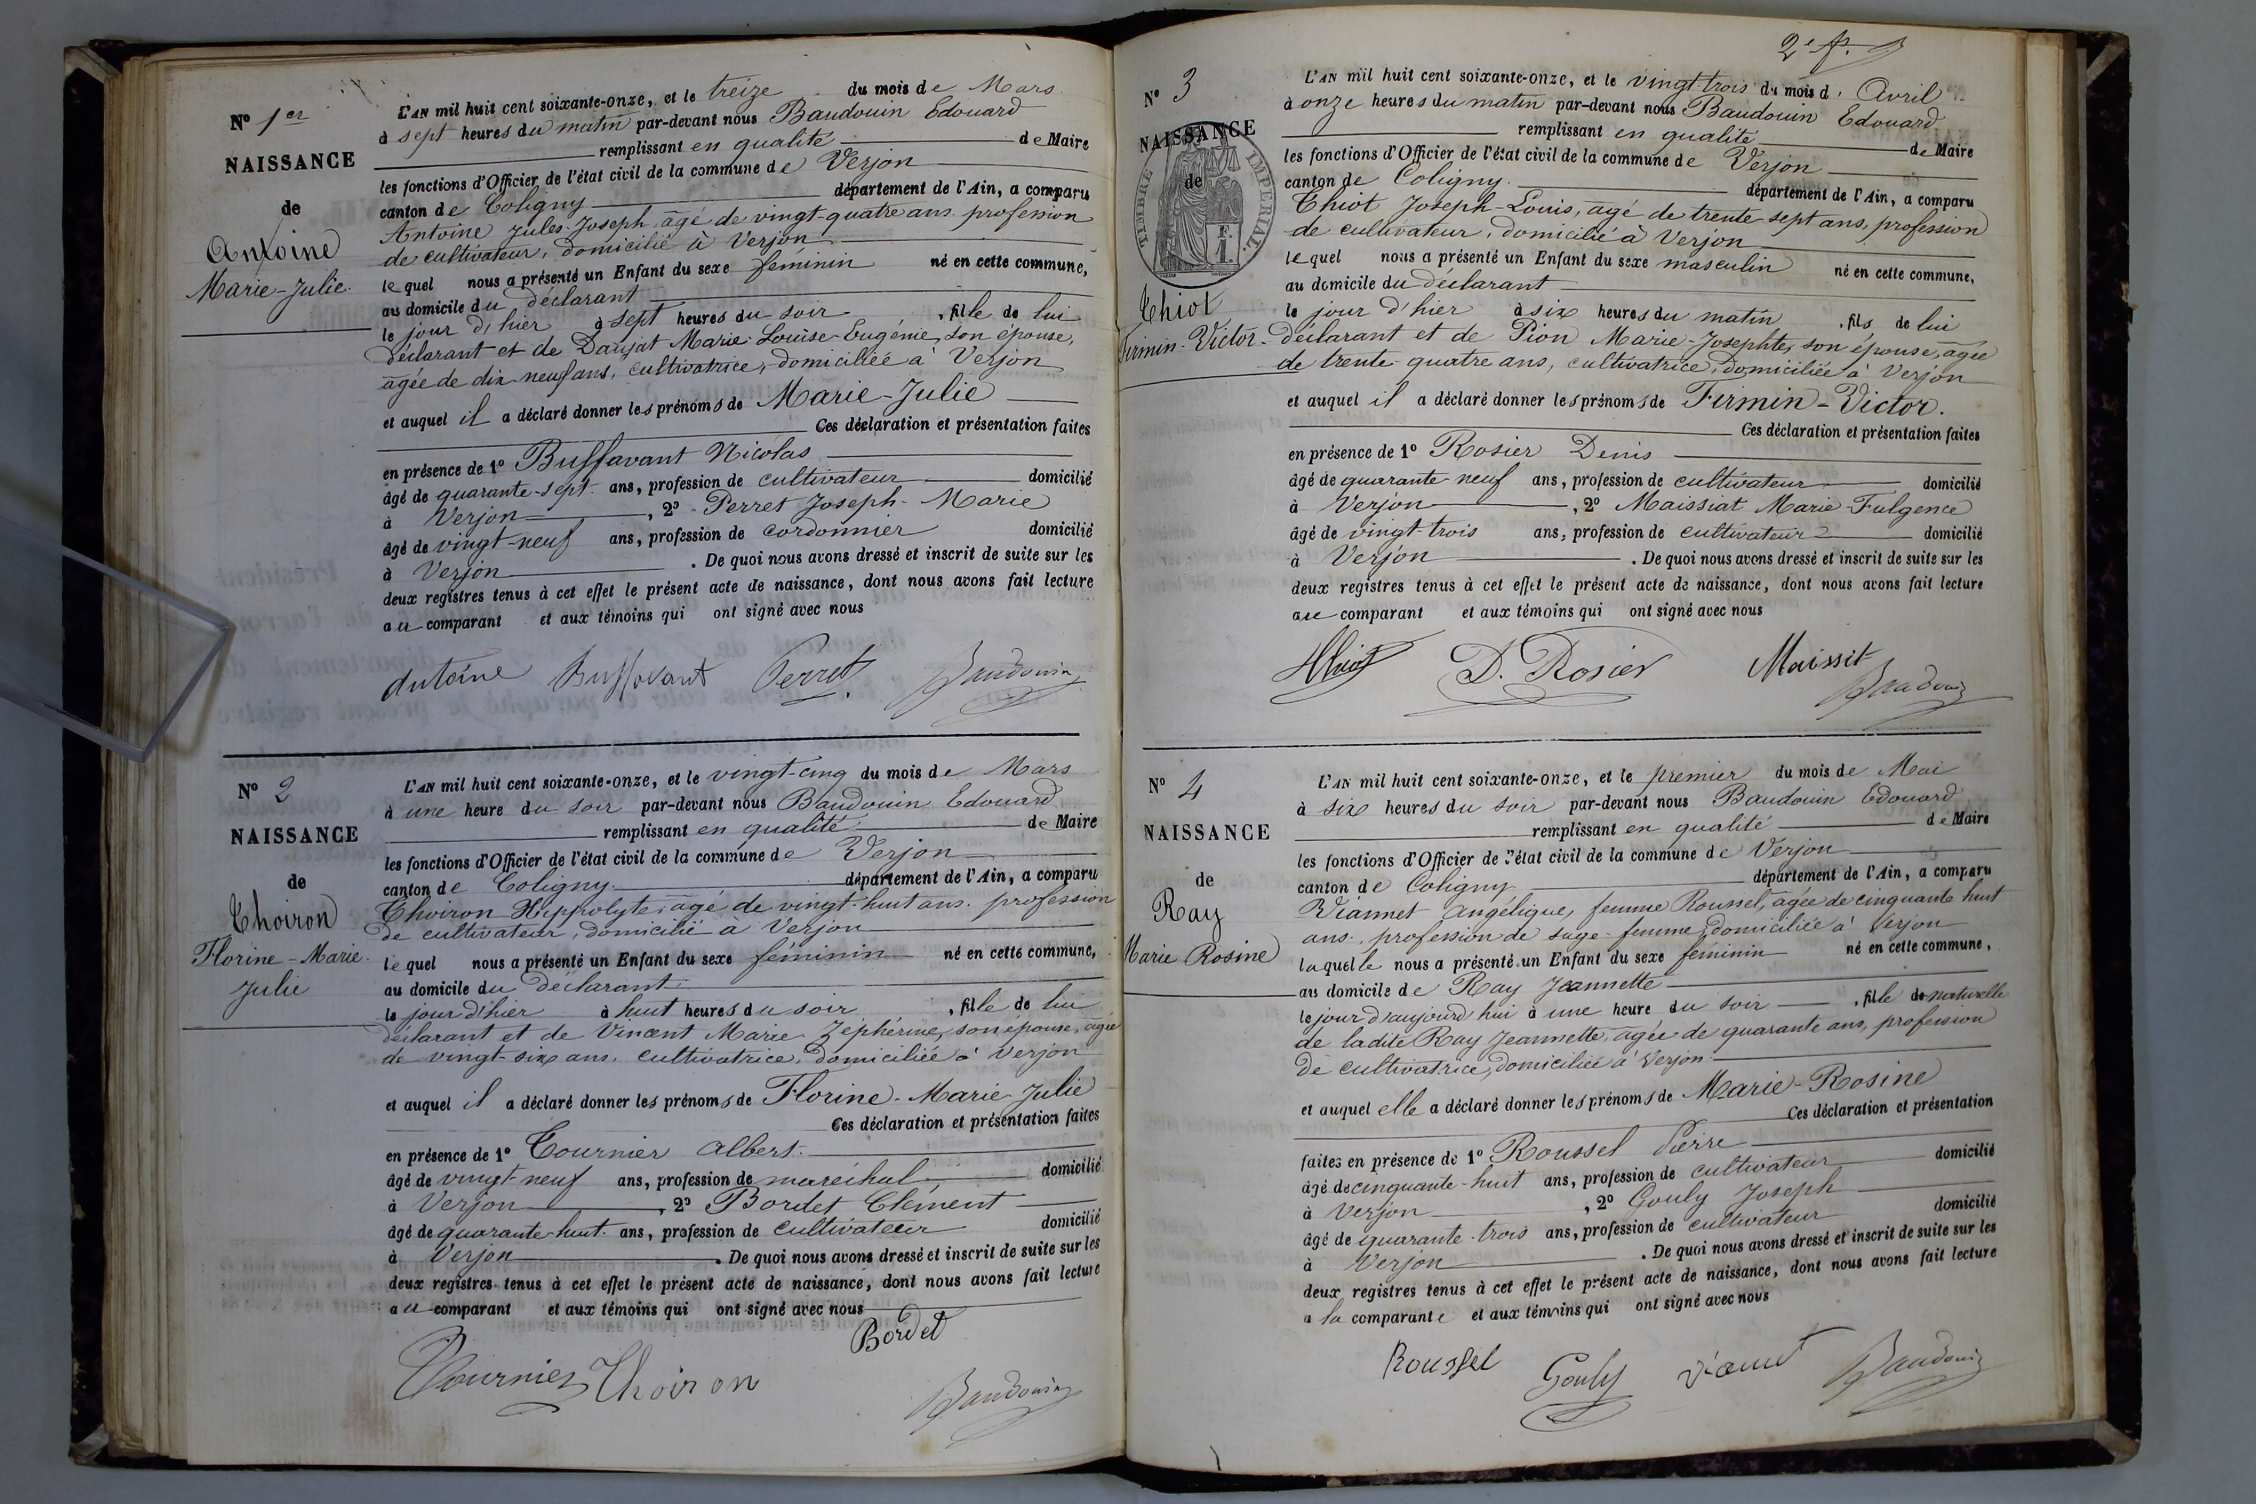 N° 1er
NAISSANCE
de
Antoine
Marie-Julie.
L'AN mil huit cent soixante-onze, et le treize du mois de Mars
à sept heures du matin par-devant nous Baudouin Edouard
remplissant en qualité de Maire
les fonctions d'Officier de l'état civil de la commune de Verjon
canton de Coligny département de l'Ain, a comparu
Antoine Jules-Joseph, âgé de vingt-quatre ans, profession
de cultivateur, domicilié à Verjon
lequel nous a présenté un Enfant du sexe féminin né en cette commune,
au domicile du déclarant
le jour d'hier à sept heures du soir, fille de lui
déclarant et de Daujat Marie-Louise-Eugénie, son épouse,
âgée de dix neuf ans, cultivatrice, domiciliée à Verjon
et auquel il a déclaré donner les prénoms de Marie-Julie
Ces déclaration et présentation faites
en présence de 1° Buffavant Nicolas
âgé de quarante-sept ans, profession de cultivateur domicilié
à Verjon, 2° Perret Joseph-Marie
âgé de vingt-neuf ans, profession de cordonnier domicilié
à Verjon. De quoi nous avons dressé et inscrit de suite sur les
deux registres tenus à cet effet le présent acte de naissance, dont nous avons fait lecture
au comparant et aux témoins qui ont signé avec nous
Antoine Buffavant Perret Baudouin
N° 2
NAISSANCE
de
Thoiron
Florine-Marie
Julie
L'AN mil huit cent soixante-onze, et le vingt-cinq du mois de Mars
à une heure du soir par-devant nous Baudouin Edouard
remplissant en qualité de Maire
les fonctions d'Officier de l'état civil de la commune de Verjon
canton de Coligny département de l'Ain, a comparu
Thoiron Hippolyte, âgé de vingt-huit ans, profession
de cultivateur, domicilié à Verjon
lequel nous a présenté un Enfant du sexe féminin né en cette commune,
au domicile du déclarant
le jour d'hier à huit heures du soir, fille de lui
déclarant et de Vincent Marie Zéphérine, son épouse, âgée
de vingt-six ans, cultivatrice, domiciliée à Verjon
et auquel il a déclaré donner les prénoms de Florine-Marie Julie
Ces déclaration et présentation faites
en présence de 1° Tournier Albert
âgé de vingt-neuf ans, profession de maréchal, domicilié
à Verjon, 2° Bordet Clément
âgé de quarante-huit ans, profession de cultivateur domicilié
à Verjon. De quoi nous avons dressé et inscrit de suite sur les
deux registres tenus à cet effet le présent acte de naissance, dont nous avons fait lecture
au comparant et aux témoins qui ont signé avec nous
Bordet
Tournier Thoiron Baudouin
2e f.
N° 3
NAISSANCE
de
TIMBRE IMPERIAL.
1 F.
Thiot
Firmin-Victor
L'AN mil huit cent soixante-onze, et le vingt-trois du mois d'Avril
à onze heures du matin par-devant nous Baudouin Edouard
remplissant en qualité de Maire
les fonctions d'Officier de l'état civil de la commune de Verjon
canton de Coligny département de l'Ain, a comparu
Thiot Joseph-Louis, âgé de trente-sept ans, profession
de cultivateur, domicilié à Verjon
lequel nous a présenté un Enfant du sexe masculin né en cette commune,
au domicile du déclarant
le jour d'hier à six heures du matin, fils de lui
déclarant et de Pion Marie-Josephte, son épouse, âgée
de trente-quatre ans, cultivatrice, domiciliée à Verjon
et auquel il a déclaré donner les prénoms de Firmin-Victor.
Ces déclaration et présentation faites
en présence de 1° Rosier Denis
âgé de quarante neuf ans, profession de cultivateur domicilié
à Verjon, 2° Maissiat Marie-Fulgence
âgé de vingt-trois ans, profession de cultivateur domicilié
à Verjon. De quoi nous avons dressé et inscrit de suite sur les
deux registres tenus à cet effet le présent acte de naissance, dont nous avons fait lecture
au comparant et aux témoins qui ont signé avec nous
Thiot D. Rosier Maissit Baudouin
N° 4
NAISSANCE
de
Ray
Marie Rosine
L'AN mil huit cent soixante-onze, et le premier du mois de Mai
à six heures du soir par-devant nous Baudouin Edouard
remplissant en qualité de Maire
les fonctions d'Officier de l'état civil de la commune de Verjon
canton de Coligny département de l'Ain, a comparu
Viannet Angélique, femme Roussel, âgée de cinquante huit
ans, profession de sage-femme, domiciliée à Verjon
laquelle nous a présenté un Enfant du sexe féminin né en cette commune,
au domicile de Ray Jeannette
le jour d'aujourd'hui à une heure du soir, fille de naturelle
de ladite Ray Jeannette, âgée de quarante ans, profession
de cultivatrice, domiciliée à Verjon
et auquel elle a déclaré donner les prénoms de Marie-Rosine
Ces déclaration et présentation
faites en présence de 1° Roussel Pierre
âgé de cinquante-huit ans, profession de cultivateur domicilié
à Verjon, 2° Gouly Joseph
âgé de quarante-trois ans, profession de cultivateur domicilié
à Verjon. De quoi nous avons dressé et inscrit de suite sur les
deux registres tenus à cet effet le présent acte de naissance, dont nous avons fait lecture
a la comparante et aux témoins qui ont signé avec nous
Roussel Gouly Baudouin